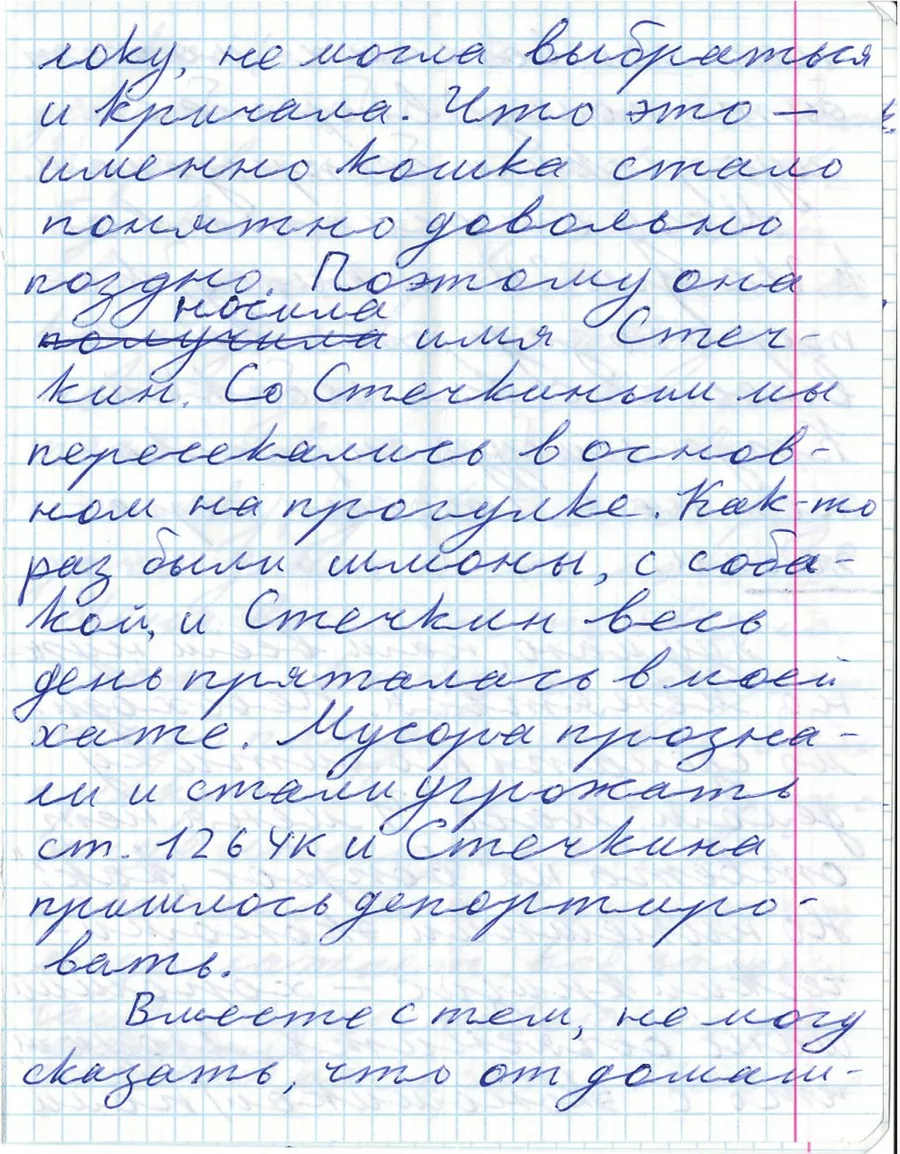 локу, не могла выбраться
и кричала. Что это —
именно кошка стало
понятно довольно
поздно. Поэтому она
носила
получила имя Стеч-
кин. Со Стечкиным мы
пересекались в основ-
ном на прогулке. Как-то
раз были шмоны, с соба-
кой, и Стечкин весь
день пряталась в моей
хате. Мусора прозна-
ли и стали угрожать
ст. 126 УК и Стечкина
пришлось депортиро-
вать.
Вместе с тем, не могу
сказать, что от домаш-